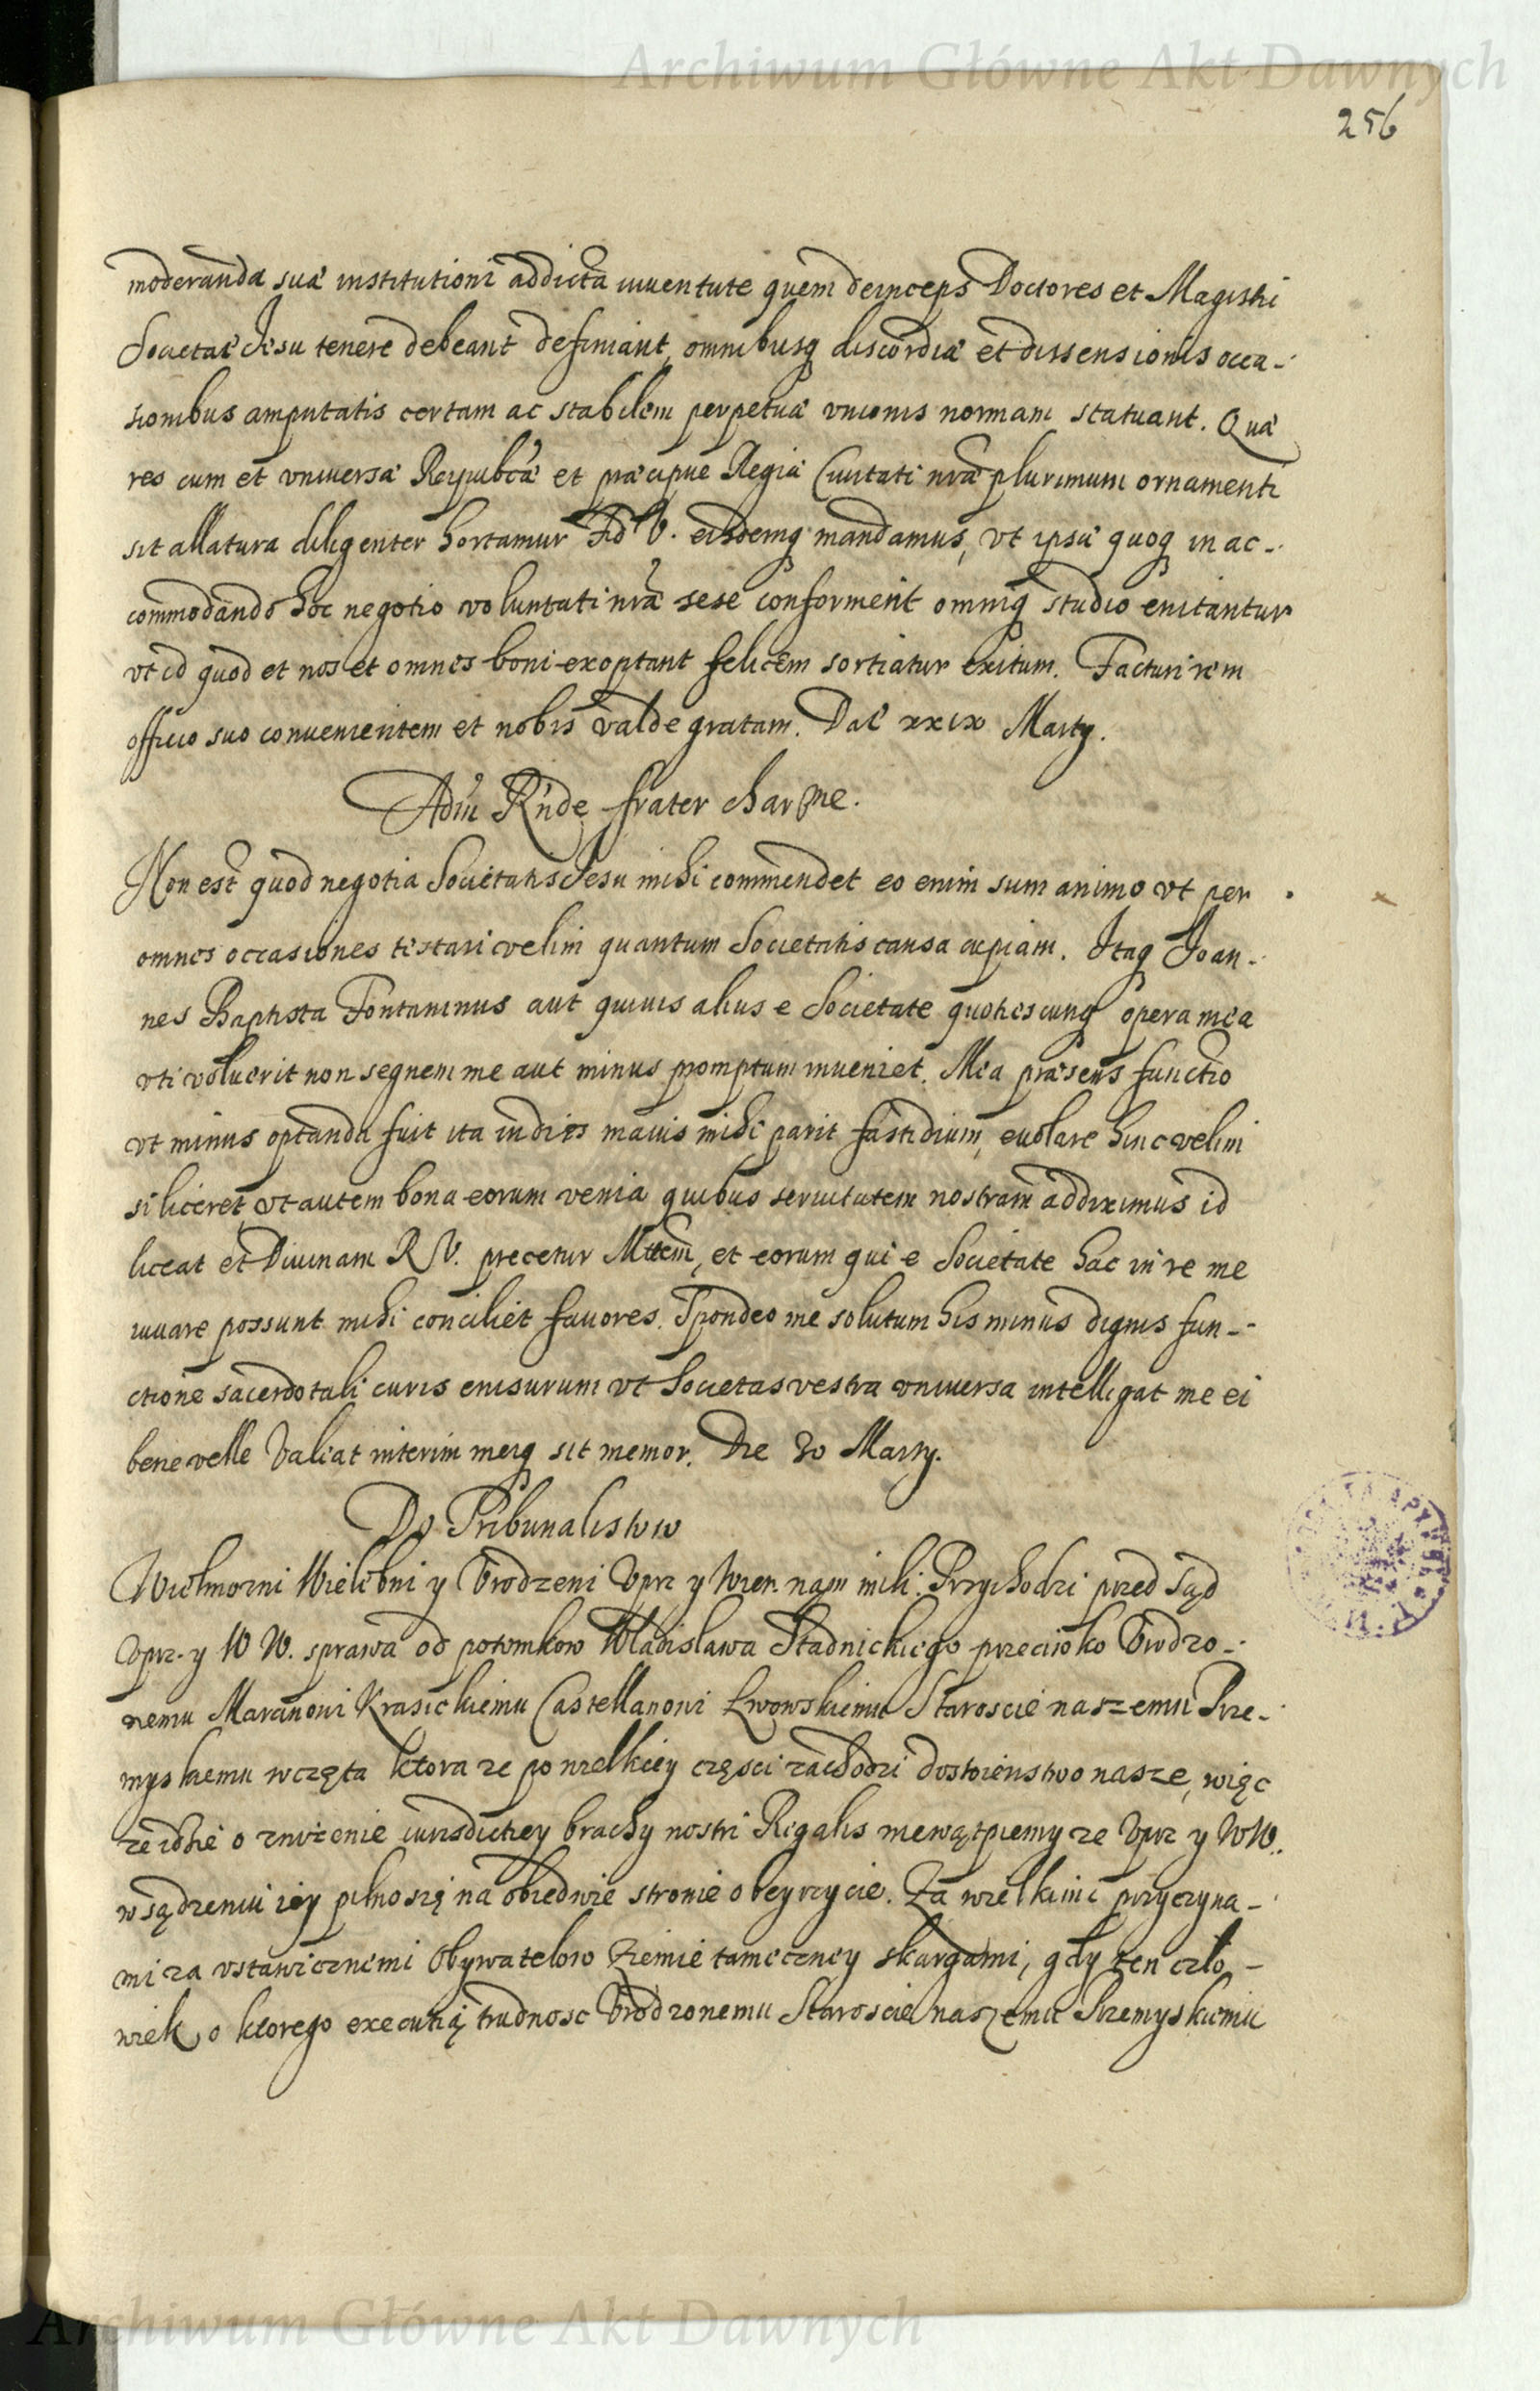 Archiwum Główne Akt Dawnych
256
moderanda suæ institutioni addicta iuuentute quem deinceps Doctores et Magistri
Societatē Jesu tenere debeant definiant, omnibusq discordiæ et dissensionis occa-
sionibus amputatis certam ac stabilem perpetuæ vnionis normam statuant. Quæ
res cum et vniuersæ Reipubcæ et præcipue Regiæ Ciuitati nræ plurimum ornamenti
sit allatura diligenter hortamur Fid V. eisdemq mandamus, vt ipsæ quoq in ac-
commodando hoc negotio voluntati nræ sese conforment omniq studio enitantur
vt id quod et nos et omnes boni exoptant felicem sortiatur exitum. Facturi rem
officio suo conuenientem et nobis valde gratam. Dat xxix Martij.
Adm Rnde frater charme.
Non est quod negotia Societatis Jesu mihi commendet eo enim sum animo vt per
omnes occasiones testari velim quantum Societatis causa cupiam. Itaq Joan-
nes Baptista Fontaninus aut quiuis alius e Societate quotiescunq opera mea
vti voluerit non segnem me aut minus promptum inueniet. Mea præsens functio
vt minus optanda fuit ita indies maius mihi parit fastidium, euolare hinc velim
si liceret, vt autem bona eorum venia quibus seruitutem nostram addiximus id
liceat et Diuinam R V. precetur Mttem, et eorum qui e Societate hac in re me
iuuare possunt mihi conciliet fauores. Spondeo me solutum his minus dignis fun-
ctione sacerdotali curis enisurum vt Societas vestra vniuersa intelligat me ei
bene velle Valeat interim meiq sit memor. Die 30 Martij.
Do Tribunalistow
Wielmozni Wielebni y Vrodzeni Vprz y Wier. nam mili. Przychodzi przed Sąd
Vprz. y W W. sprawa od potomkow Wladislawa Stadnickiego przeciwko Vrodzo-
nemu Maranowi Krasickiemu Castellanowi Lwowskiemu Staroscie naszemu Prze-
myskiemu wczęta ktora ze po wielkiey częsci zachodzi dostoienstwo nasze, więc
ze idzie o znizenie iurisdictiey brachy nostri Regalis niewątpiemy ze Vprz y WW.
w sądzeniu iey pilno się na obiedwie stronie obeyrzycie. Za wielkimi przyczyna-
mi za vstawicznemi Obywatelow Ziemie tameczney skargami, gdy ten czlo-
wiek, o ktorego executią trudnosc Vrodzonemu Staroscie naszemu Przemyskiemu
Archiwum Główne Akt Dawnych